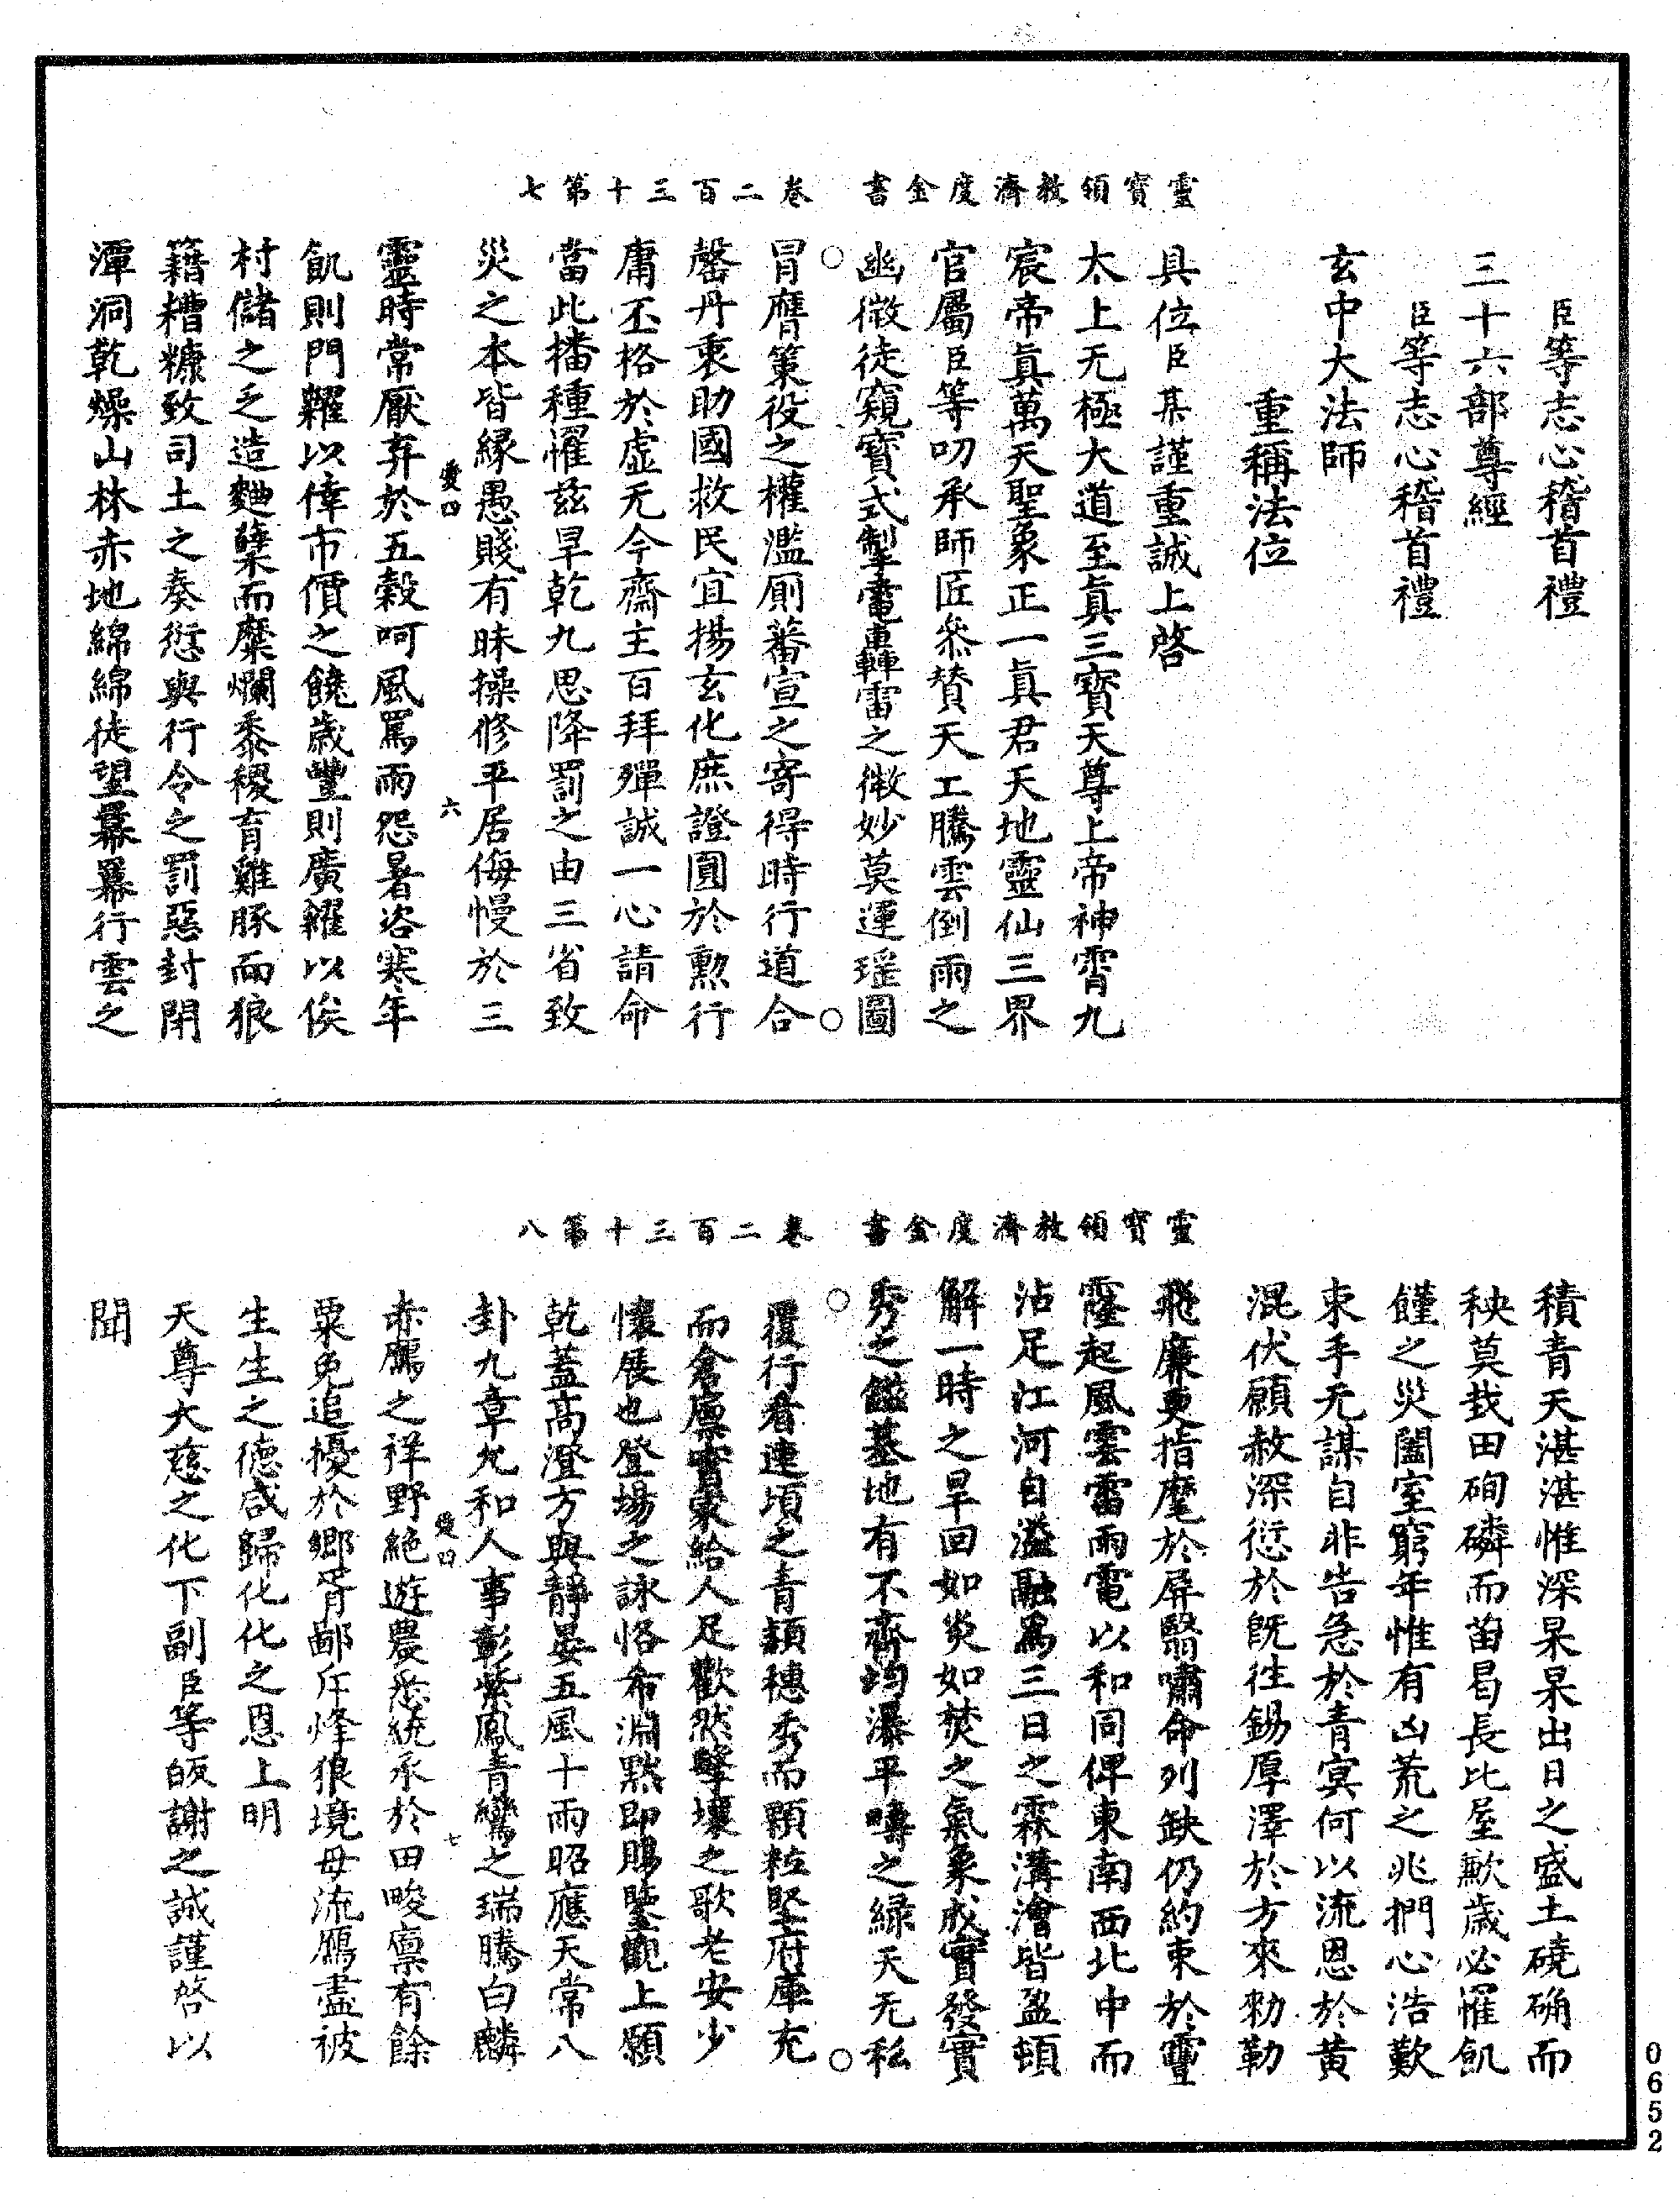 靈寶領教濟度金書　卷二百三十第七
臣等志心稽首禮
三十六部尊經
臣等志心稽首禮
玄中大法師
重稱法位
具位臣某謹重誠上啓
太上无極大道至眞三寶天尊上帝神霄九
宸帝眞萬天聖象正一眞君天地靈仙三界
官屬臣等叨承師匠叅贊天工騰雲倒雨之
幽微徒窺寶式掣電轟雷之微妙莫運瑶圖
冒膺策役之權濫厠蕃宣之寄得時行道合
罄丹衷助國救民宜揚玄化庶證圓於勲行
庸丕格於虛无今齋主百拜殫誠一心請命
當此播種懼兹旱乾九思降罰之由三省致
災之本皆緣愚賤有昧操修平居侮慢於三
愛四　六
靈時常厭弃於五穀呵風罵雨怨暑咨寒年
飢則門糶以倖市價之饒歲豐則廣糴以俟
村儲之乏造麯蘖而糜爛黍稷育雞豚而狼
籍糟糠致司土之奏愆與行令之罰惡封閉
潭洞乾燥山林赤地綿綿徒望羃羃行雲之
靈寶領教濟度金書　卷二百三十第八
積青天湛湛惟深杲杲出日之盛土磽确而
秧莫栽田硐磷而苗曷長比屋歉歲必罹飢
饉之災闔室窮年惟有凶荒之兆捫心浩歎
束手无謀自非告急於青㝠何以流恩於黄
混伏願赦深愆於旣往錫厚澤於方來勑勒
飛廉更指麾於屏翳嘯命列缺仍約束於靈
霳起風雲雷雨電以和同俾東南西北中而
沾足江河自溢融爲三日之霖溝澮皆盈頓
解一時之旱回如炎如焚之氣象成實發實
秀之鎡基地有不齊均瀑平疇之緑天无私
覆行看連頃之青穎穗秀而顆粒堅府庫充
而倉廪實家給人足歡然擊壤之歌老安少
懷展也登場之詠恪希淵黙即賜鑒觀上願
乾蓋高澄方輿靜晏五風十雨昭應天常八
卦九章允和人事彰紫鳳青鸞之瑞騰白麟
赤鴈之祥野絶遊農悉統承於田畯廪有餘
愛四　七
粟免追擾於鄉胥鄙斥烽狼境毋流鴈盡被
生生之德咸歸化化之恩上明
天尊大慈之化下副臣等皈謝之誠謹啓以
聞
0652